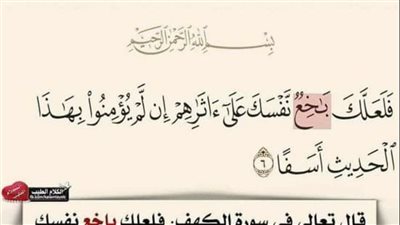 بِسْمِ اللَّهِ الرَّحْمَٰنِ الرَّحِيمِ
فَلَعَلَّكَ بَٰخِعٌ نَّفْسَكَ عَلَىٰٓ ءَاثَٰرِهِمْ إِن لَّمْ يُؤْمِنُوا۟ بِهَٰذَا
الْحَدِيثِ أَسَفًا ٦
الكلام الطيب
قال تعالى في سورة الكهف: فلعلك باخع نفسك